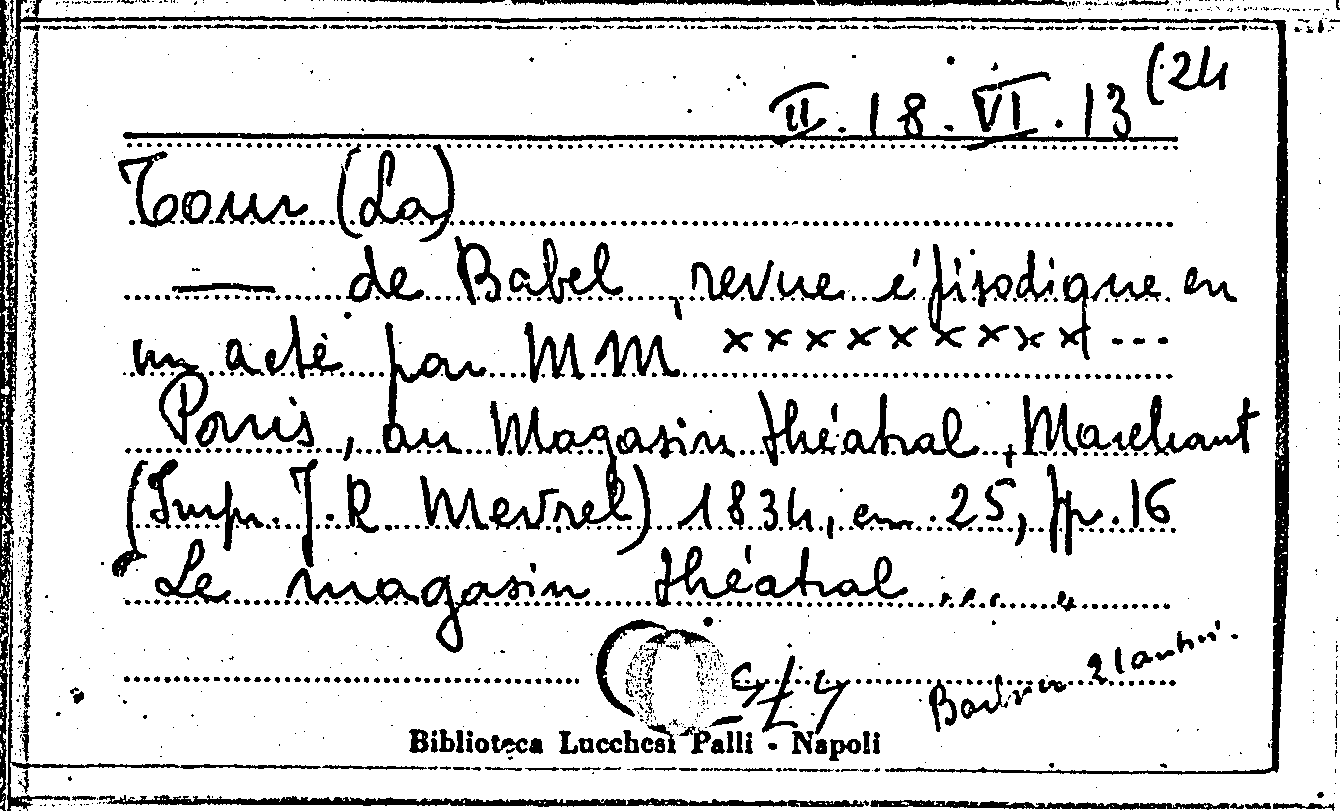 II.18.VI.13(24
Tour (La)
— de Babel, revue épisodique en
un acte par MM xxxxxxxxx---
Paris, au Magasin théatral, Marchant
(Imp. J.R. Mevrel) 1834, cm. 25, pp. 16
"Le magasin théatral .... "
Biblioteca Lucchesi Palli - Napoli